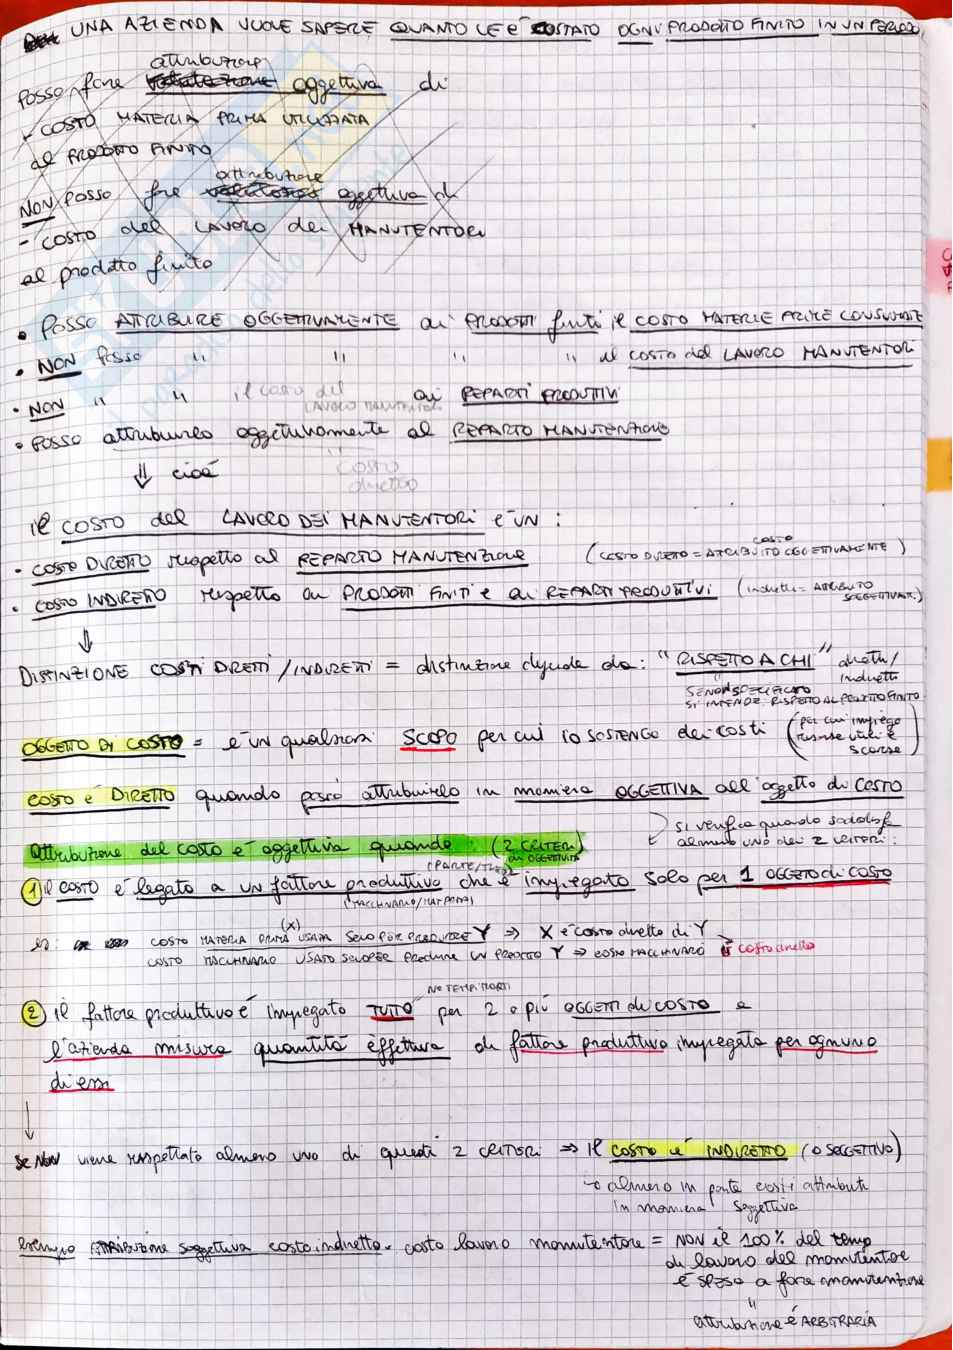 UNA AZIENDA VUOLE SAPERE QUANTO LE È COSTATO OGNI PRODOTTO FINITO IN UN PERIODO,
attribuzione
Posso fare oggettiva di
- COSTO MATERIA PRIMA UTILIZZATA
al PRODOTTO FINITO
attribuzione
NON posso fare oggettiva di
- COSTO del LAVORO dei MANUTENTORI
al prodotto finito
• Posso ATTRIBUIRE OGGETTIVAMENTE ai PRODOTTI finiti il COSTO MATERIE PRIME CONSUMATE
• NON posso " " " " il COSTO del LAVORO MANUTENTORI
• NON " " il costo del LAVORO MANUTENTORI ai REPARTI PRODUTTIVI
• Posso attribuirlo oggettivamente al REPARTO MANUTENZIONE
⇓ cioè
" COSTO diretto
il COSTO del LAVORO DEI MANUTENTORI è UN :
• COSTO DIRETTO rispetto al REPARTO MANUTENZIONE (COSTO DIRETTO = COSTO ATTRIBUITO OGGETTIVAMENTE)
• COSTO INDIRETTO rispetto ai PRODOTTI FINITI E ai REPARTI PRODUTTIVI (indiretti = ATTRIBUITO SOGGETTIVAM.)
⇓
DISTINZIONE COSTI DIRETTI/INDIRETTI = distinzione dipende da: "RISPETTO A CHI" diretti/indiretti
"
SE NON SPECIFICATO
SI INTENDE: RISPETTO AL PRODOTTO FINITO
OGGETTO DI COSTO = è UN qualsiasi SCOPO per cui io SOSTENGO dei costi (per cui impiego risorse utili e scarse)
COSTO È DIRETTO quando posso attribuirlo in maniera OGGETTIVA all'oggetto di COSTO
si verifica quando soddisfa
almeno uno dei 2 criteri:
Attribuzione del costo è oggettiva quando : (2 CRITERI di OGGETTIVITÀ)
1) il costo è legato a un fattore produttivo che è impiegato solo per 1 OGGETTO di COSTO
(MACCHINARIO/MAT PRIMA)
es: COSTO MATERIA PRIMA (X) USATA SOLO PER PRODURRE Y ⇒ X è costo diretto di Y
COSTO MACCHINARIO USATO SOLO PER PRODURRE UN PRODOTTO Y ⇒ COSTO MACCHINARIO è costo diretto
NO TEMPI MORTI
2) il fattore produttivo è impiegato TUTTO per 2 o più OGGETTI di COSTO e
l'azienda misura quantità effettiva di fattore produttivo impiegata per ognuno
di essi
↓
SE NON viene rispettato almeno uno di questi 2 CRITERI ⇒ il COSTO È INDIRETTO (o SOGGETTIVO)
→ almeno in parte costi attribuiti
in maniera soggettiva
esempio ATTRIBUZIONE soggettiva costo indiretto. costo lavoro manutentore = NON il 100% del tempo
di lavoro del manutentore
è speso a fare manutenzione
"
attribuzione è ARBITRARIA